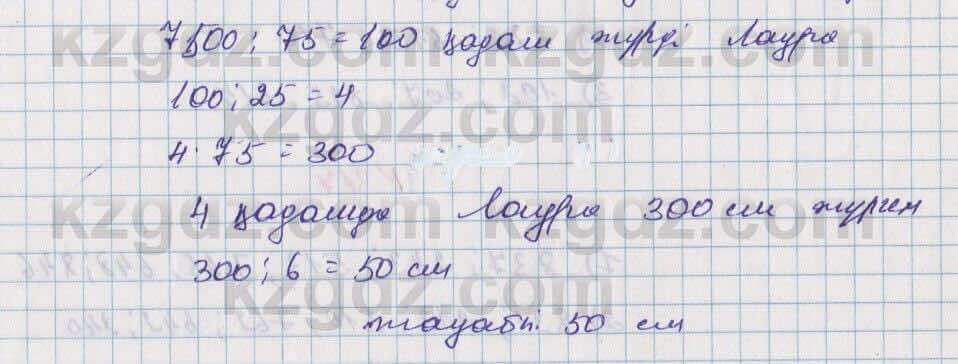 7500 : 75 = 100 қадам жүрді Лаура
100 : 25 = 4
4 · 75 = 300
4 қадамда Лаура 300 см жүрген
300 : 6 = 50 см
жауабы: 50 см
kzgdz.com
kzgdz.com
kzgdz.com
kzgdz.com